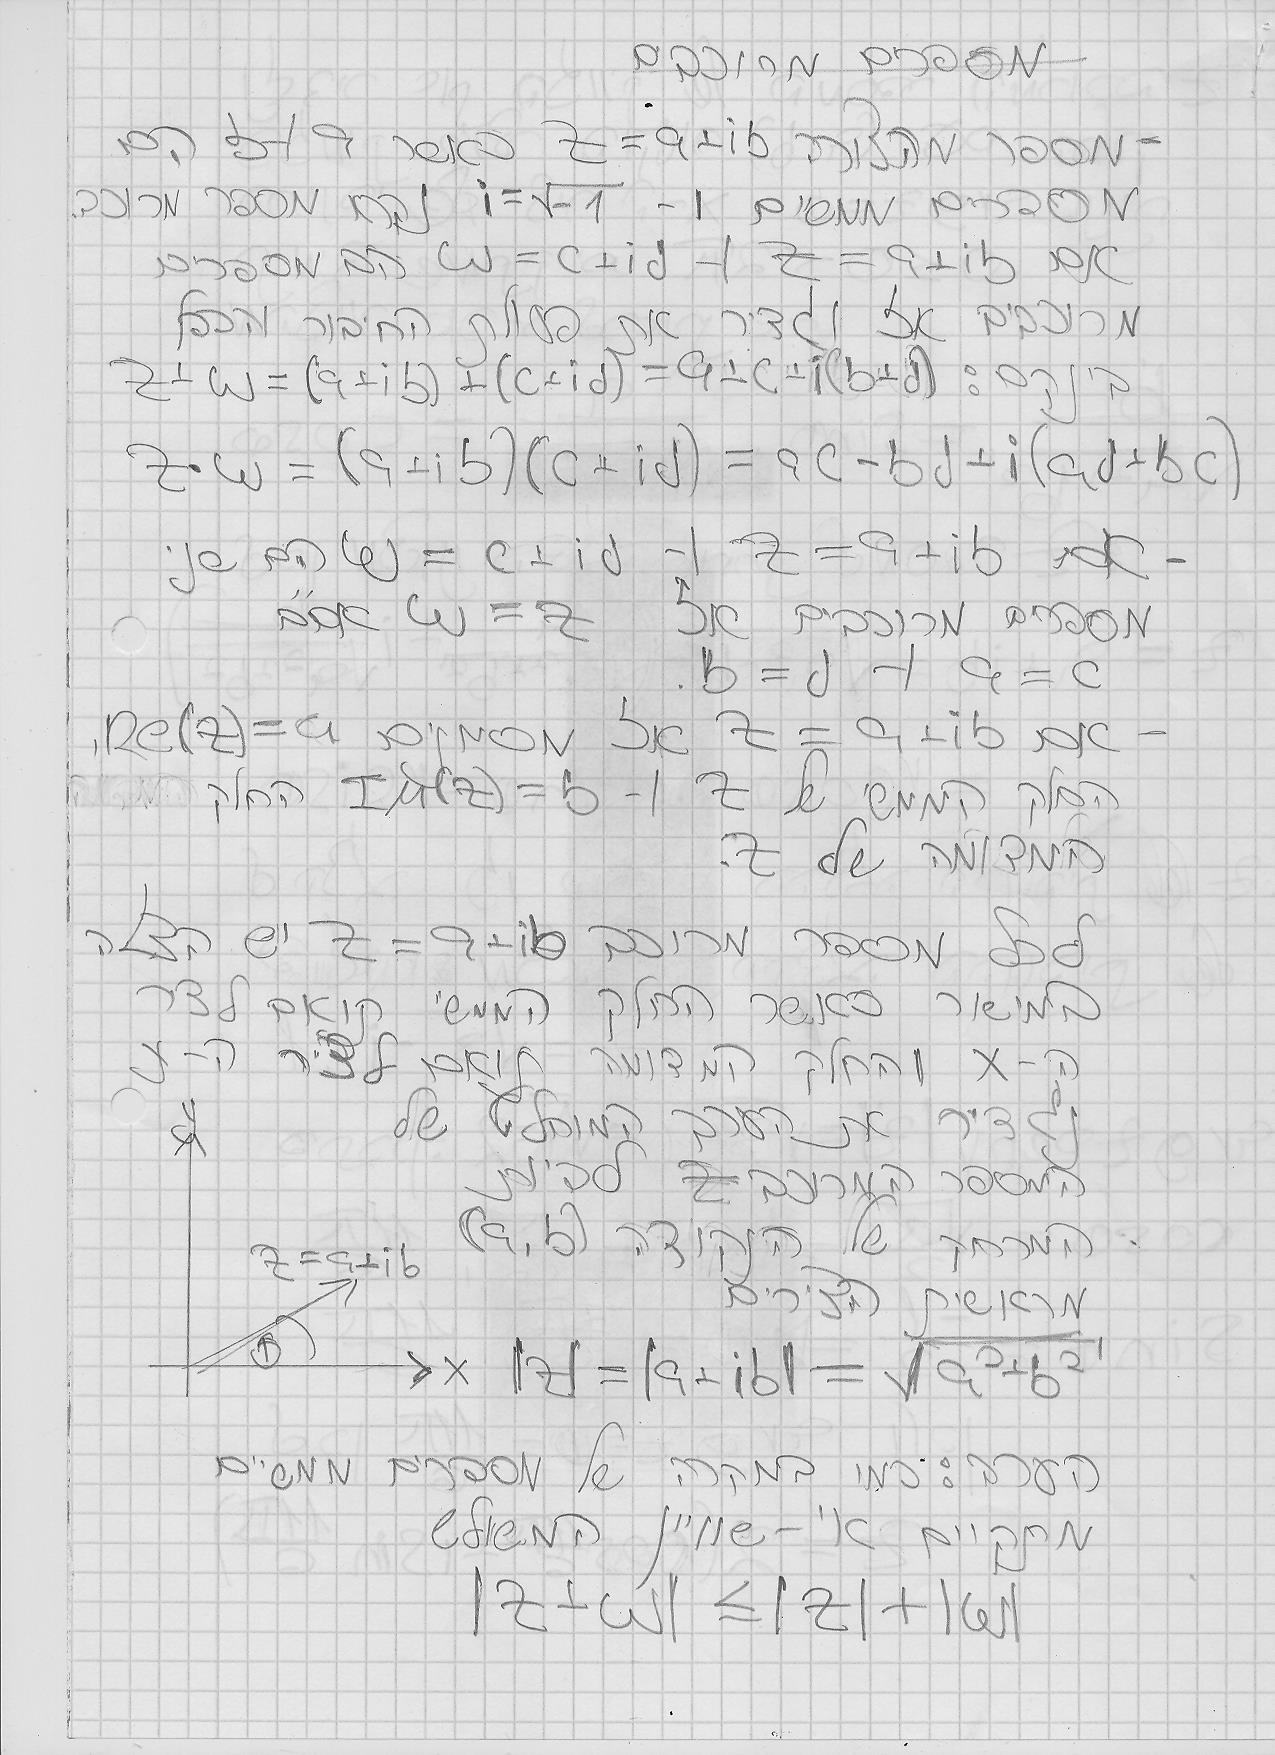 מספרים מרוכבים
- מספר מהצורה z=a+ib כאשר a ו-b הם
מספרים ממשיים ו- i=√-1 נקרא מספר מרוכב.
אם z=a+ib ו- w=c+id הם מספרים
מרוכבים אז נגדיר את פעולת החיבור והכפל
ביניהם: z+w=(a+ib)+(c+id)=a+c+i(b+d)
z·w=(a+ib)(c+id)=ac-bd+i(ad+bc)
- אם z=a+ib ו- w=c+id הם שני
מספרים מרוכבים אז z=w אם"ם
a=c ו- b=d.
- אם z=a+ib אז מסמנים Re(z)=a,
החלק הממשי של z ו- Im(z)=b החלק
המדומה של z.
לכל מספר מרוכב z=a+ib יש הצגה
במישור כאשר החלק הממשי תואם לציר
ה-x והחלק המדומה תואם לציר ה-y
נגדיר את הערך המוחלט של
המספר המרוכב z להיות
המרחק של הנקודה (a,b)
מראשית הצירים
y
z=a+ib
x
|z|=|a+ib|=√a²+b²
הערה: כמו במקרה של מספרים ממשיים
מתקיים אי-שוויון המשולש
|z+w|≤|z|+|w|